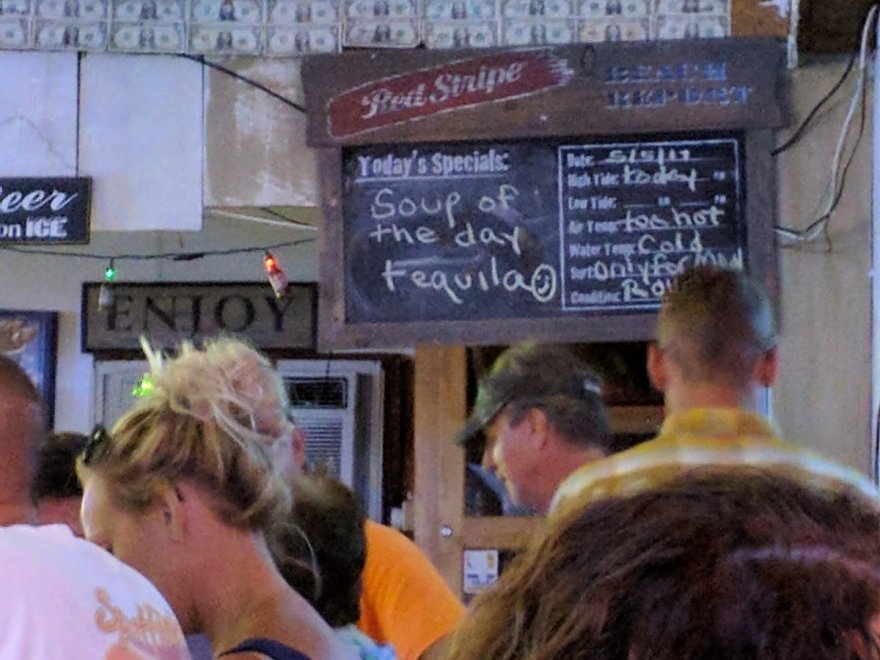 Red Stripe
BEACH
REPORT
Today's Specials:
Soup of
the day
tequila
Date: 5/5/17
High Tide: today PM
Low Tide: AM PM
Air Temp: too hot
Water Temp: Cold
Surf: only for
Condition:
Beer
on ICE
ENJOY